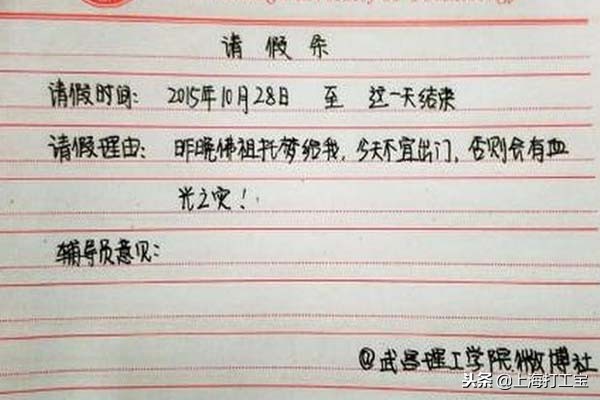 请假条
请假时间：2015年10月28日 至 这一天结束
请假理由：昨晚佛祖托梦给我，今天不宜出门，否则会有血
光之灾！
辅导员意见：
@武昌理工学院微博社
头条@上海打工宝